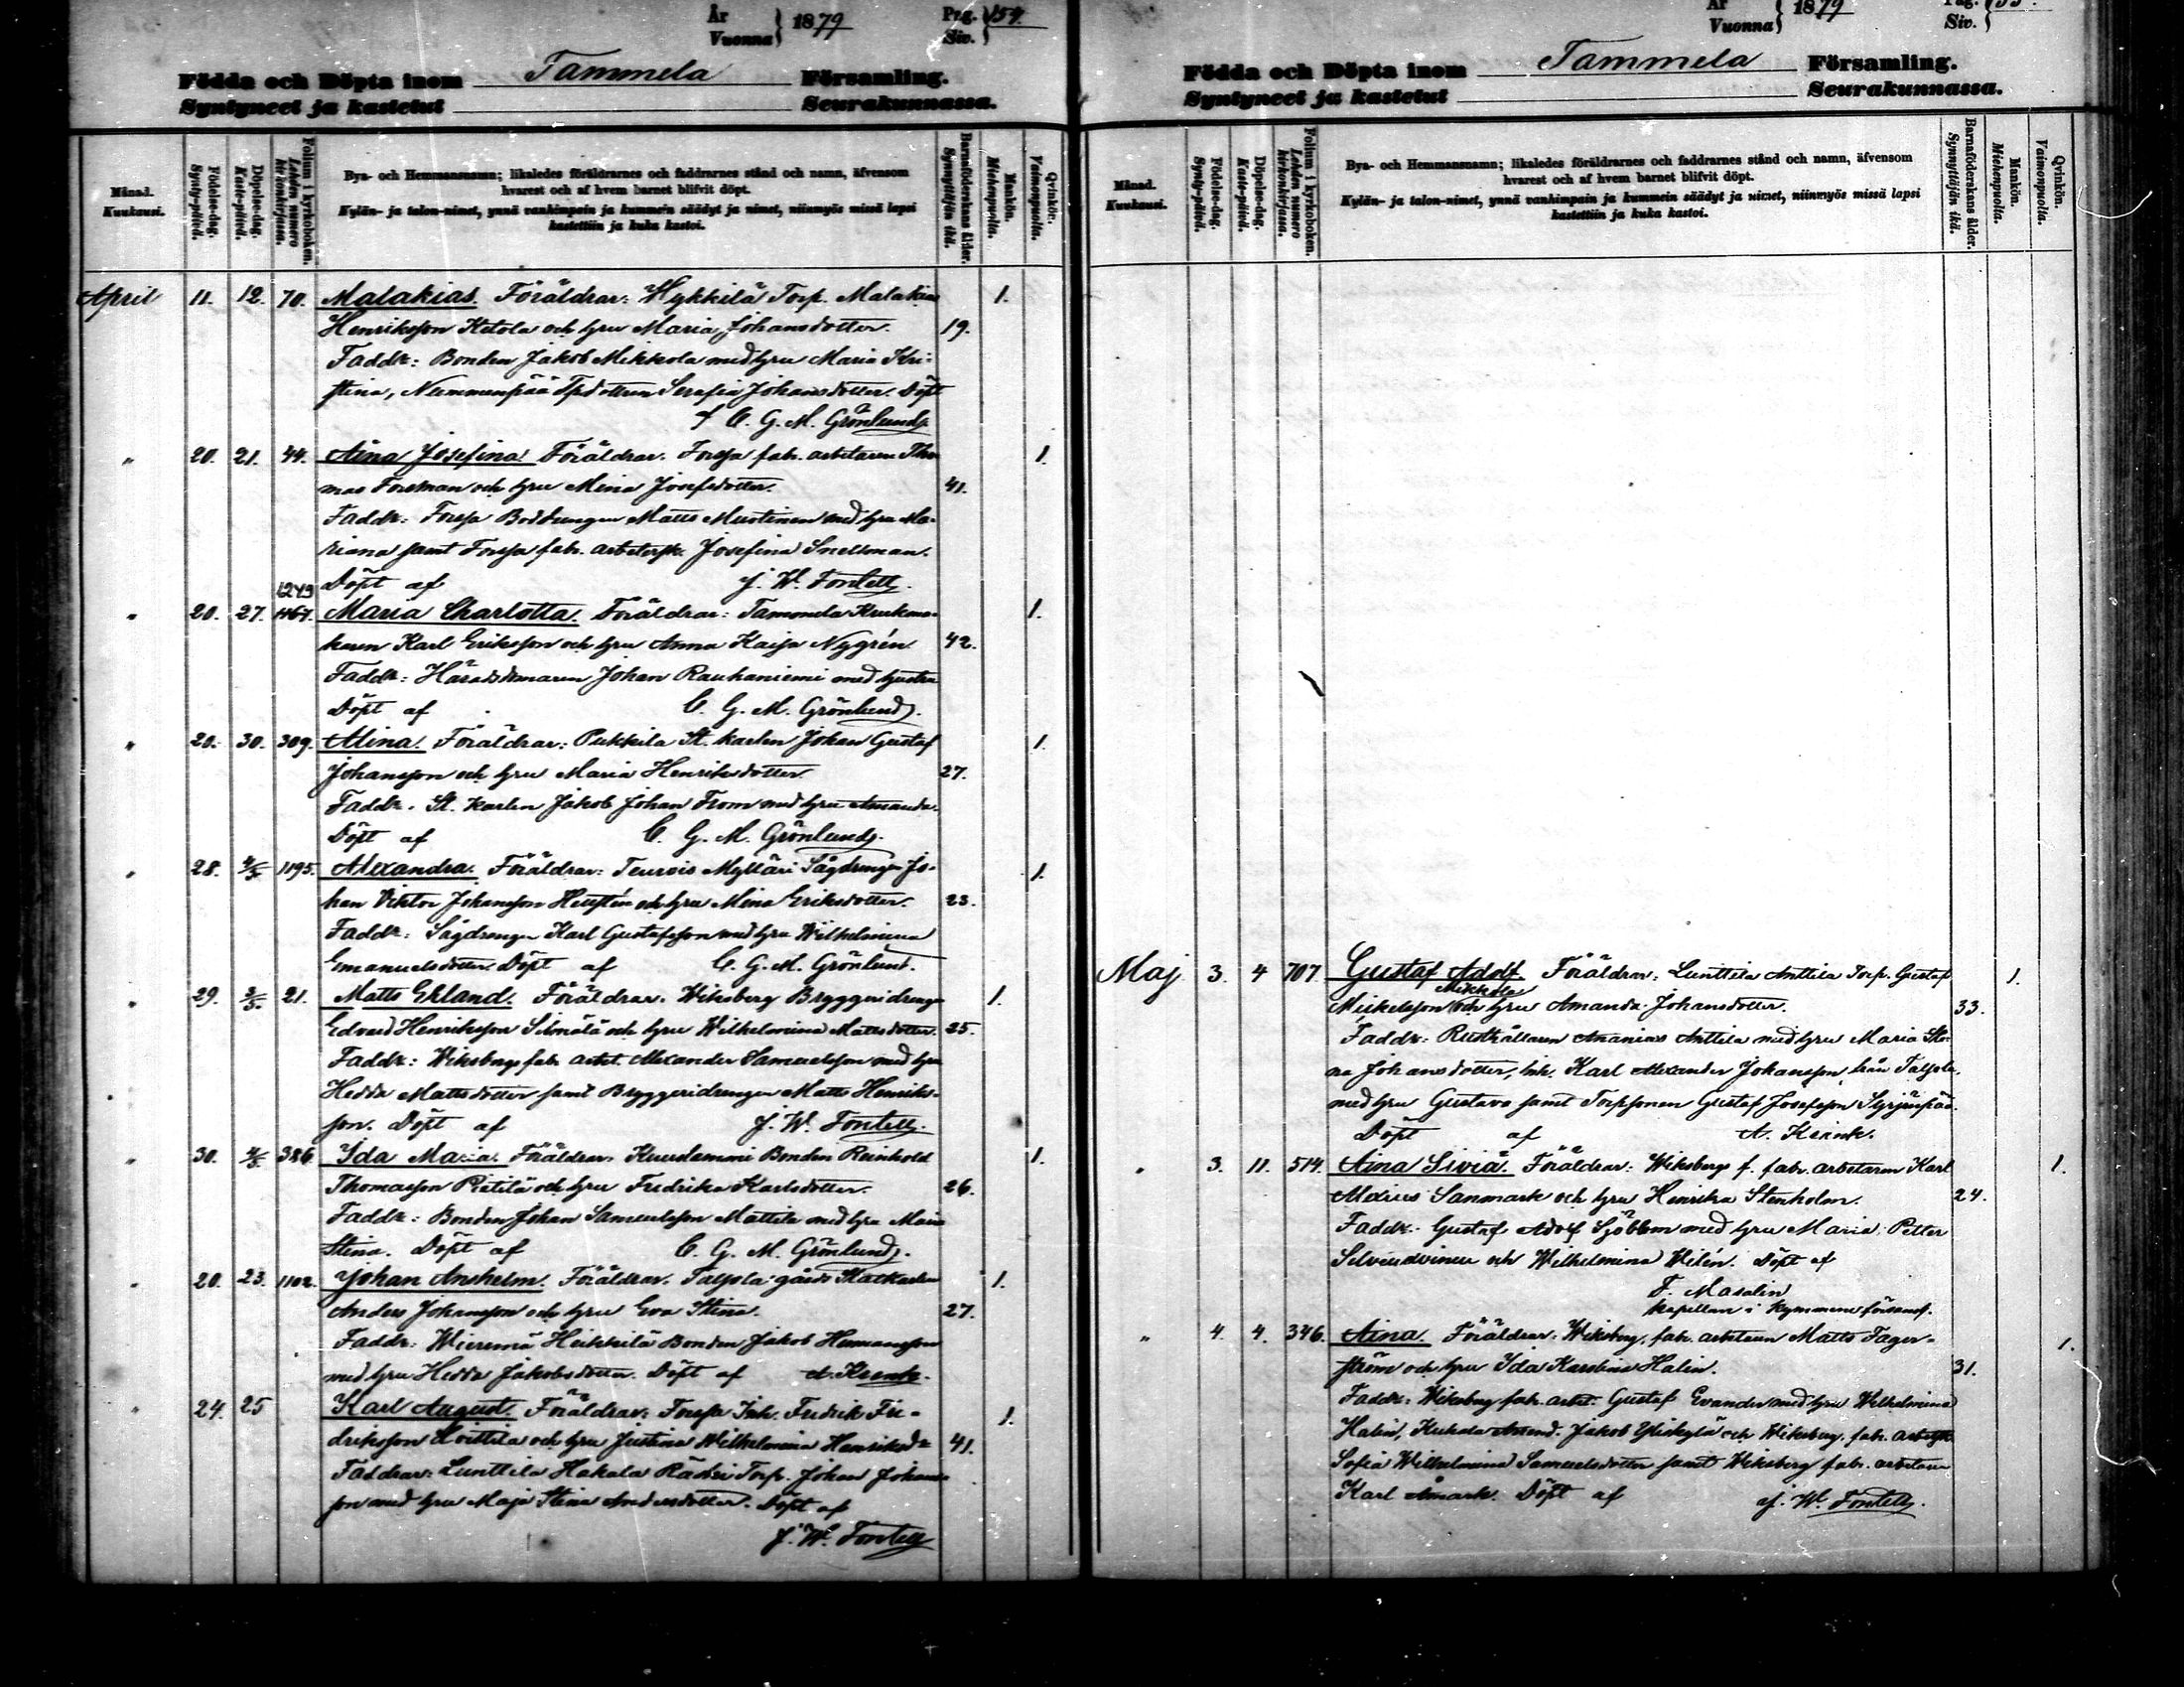 År
Vuonna } 1879
Pag.
Siv. } 154.
Födda och Döpta inom Tammela Församling.
Syntyneet ja kastetut Seurakunnassa.
Månad.
Kuukausi.
Födelse-dag.
Synty-päivä.
Döpelse-dag.
Kaste-päivä.
Folium i kyrkoboken.
Lehden numero kirkonkirjassa.
Bya- och Hemmansnamn; likaledes föräldrarnes och faddrarnes stånd och namn, äfvensom
hvarest och af hvem barnet blifvit döpt.
Kylän- ja talon-nimet, ynnä vanhimpain ja kummein säädyt ja nimet, niinmyös missä lapsi
kastettiin ja kuka kastoi.
Barnaföderskans ålder.
Synnyttäjän ikä.
Mankön.
Miehenpuolta.
Qvinkön.
Vaimonpuolta.
April 11. 12. 70. Malakias. Föräldrar: Hykkilä Torp. Malakias 1.
Henriksson Ketola och hru Maria Johansdotter. 19.
Faddr: Bonden Jakob Mikkola med hru Maria Kri-
stina, Nummenpää Tpdottren Serafia Johansdotter. Döpt
f C. G. M. Grönlund.
" 20. 21. 44. Aina Josefina Föräldrar. Forssa fab. arbetaren Tho 1.
mas Forsman och hru Mina Josefsdotter. 41.
Faddr: Forssa Matts Mustinen med hru Ma-
riana samt Forssa fab. arbetersk. Josefina Snellman.
Döpt af J. W. Fontell.
1249
" 20. 27. 1167. Maria Charlotta. Föräldrar: Tammela Krukma- 1.
karen Karl Eriksson och hru Anna Kaisa Nygrén. 42.
Faddr: Häradstjenaren Johan Rauhaniemi med hustru
Döpt af C. G. M. Grönlund.
" 20. 30. 309. Alina. Föräldrar: Pukkila St. karlen Johan Gustaf 1.
Johansson och hru Maria Henriksdotter. 27.
Faddr. St. karlen Jakob Johan From med hru Amanda.
Döpt af C. G. M. Grönlund.
" 28. 4/5. 1195. Alexandra. Föräldrar: Teurois Mylläri Sågdrengen Jo- 1.
han Viktor Johansson och hru Mina Eriksdotter. 23.
Faddr: Sågdrengen Karl Gustafsson med hru Wilhelmina
Emanuelsdotter. Döpt af C. G. M. Grönlund.
" 29. 21. Matts Erland. Föräldrar. Wiksberg Bryggeridrengen 1.
Edvard Henriksson och hru Wilhelmina Mattsdotter. 25.
Faddr: Wiksbergs fab. arbet. Alexander Samuelsson med hru
Hedda Mattsdotter samt Bryggeridrengen Matts Henriks-
son. Döpt af J. W. Fontell.
" 30. 4/5. 386. Ida Maria. Föräldrar. Kuuslammi Bonden Reinhold 1.
Thomasson Pietilä och hru Fredrika Karlsdotter. 26.
Faddr: Bonden Johan Samuelsson Mattila med hru Maria
Stina. Döpt af C. G. M. Grönlund.
" 20. 23. 1102. Johan Anshelm. Föräldrar. Talpola gårds Statkarlen 1.
Anders Johansson och hru Eva Stina. 27.
Faddr: Wieremä Heikkilä Bonden Jakob Hermansson
med hru Hedda Jakobsdotter. Döpt af A. Krank.
" 24. 25 Karl August. Föräldrar: Forssa Inh. Fredrik Fre- 1.
driksson och hru Justina Wilhelmina Henriksdr 41.
Faddrar: Lunttila Hakala Torp. Johan Johans
son med hru Maja Stina Andersdotter. Döpt af
J. W. Fontell
År
Vuonna } 1879
Pag.
Siv. }
Födda och Döpta inom Tammela Församling.
Syntyneet ja kastetut Seurakunnassa.
Månad.
Kuukausi.
Födelse-dag.
Synty-päivä.
Döpelse-dag.
Kaste-päivä.
Folium i kyrkoboken.
Lehden numero kirkonkirjassa.
Bya- och Hemmansnamn; likaledes föräldrarnes och faddrarnes stånd och namn, äfvensom
hvarest och af hvem barnet blifvit döpt.
Kylän- ja talon-nimet, ynnä vanhimpain ja kummein säädyt ja nimet, niinmyös missä lapsi
kastettiin ja kuka kastoi.
Barnaföderskans ålder.
Synnyttäjän ikä.
Mankön.
Miehenpuolta.
Qvinkön.
Vaimonpuolta.
Maj 3. 4 707 Gustaf Adolf. Föräldrar: Lunttila Anttila Torp. Gustaf 1.
Mikkola
Mickelsson och hru Amanda Johansdotter. 33.
Faddr: Rusthållaren Ananias Anttila med hru Maria Ste-
na Johansdotter, Inh. Karl Alexander Johansson från Talpola,
med hru Gustava samt Torpsonen Gustaf Josefsson Syrjänpää.
Döpt af A. Krank.
" 3. 11. 514. Aina Livia. Föräldrar: Wiksbergs f. fab. arbetaren Karl 1.
Sanmark och hru Henrika Stenholm. 24.
Faddr. Gustaf Adolf Sjöblom med hru Maria, Petter
och Wilhelmina Wilén. Döpt af
F. Masalin
kapellan i Kymmene församl.
" 4. 4. 346. Aina. Föräldrar. Wiksberg, fab. arbetaren Matts Fager- 1.
ström och hru Ida Karolina Halin. 31.
Faddr: Wiksberg fab. arbet. Gustaf Evander med hru Wilhelmina
Halin, Kuhala Jakob Yliskylä och Wiksberg. fab. arbetsk
Sofia Wilhelmina Samuelsdotter samt Wiksberg fab. arbetare
Karl Åmark. Döpt af J. W. Fontell.